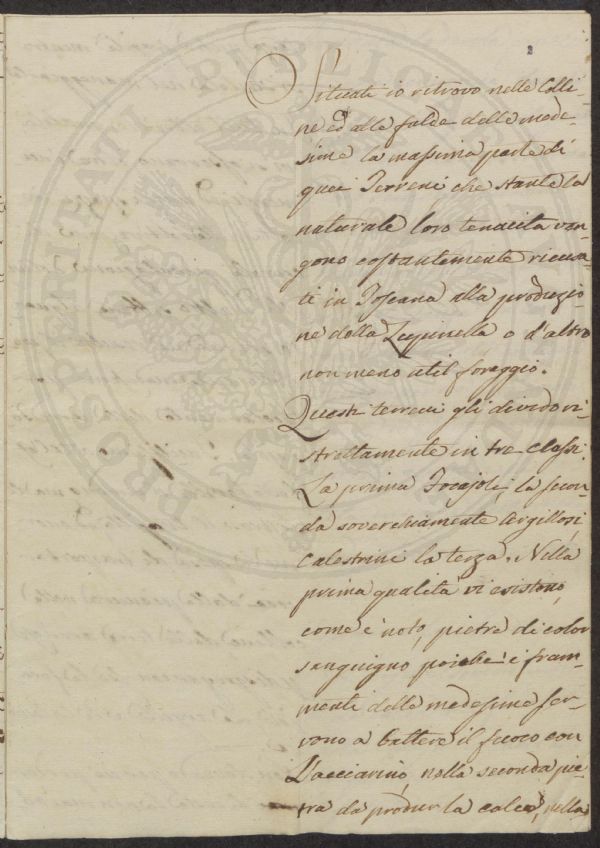 2
Situati io ritrovo nelle Colli-
ne ed alle falde delle mede-
sime la massima parte di
quei Terreni che stante la
naturale loro tenacita ven-
gono costantemente ricusa-
ti in Toscana alla produzio-
ne della Lupinella o d'altro
non meno util foraggio.
Questi terreni gli divido ri-
strettamente in tre classi.
La prima Focajoli, la secon-
da soverchiamente Argillosi,
Calestrini la terza. Nella
prima qualità vi esistono,
come è noto, pietre di color
sanguigno poichè i fram-
menti delle medesime ser-
vono a battere il fuoco con
l'acciarino, nella seconda pie-
tra da produr la calce, nella
PROSPERITATI PUBLICAE